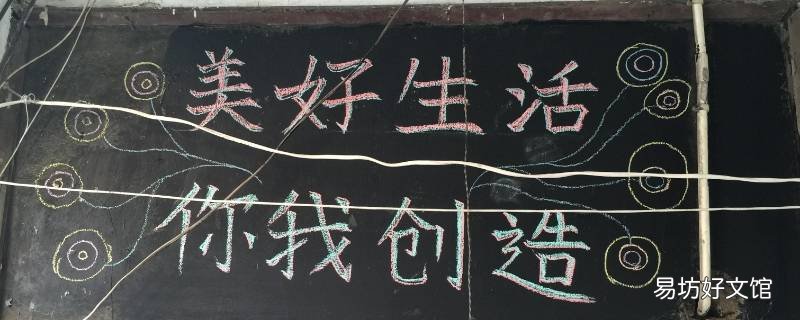 美好生活
你我创造
易坊好文馆